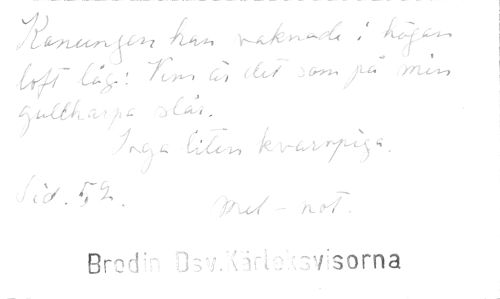 Konungen han vaknade i högan
loft låg: Vem är det som på min
gullharpa slår.
Inga liten kvarnpiga.
Sid. 52.
Mel-not.
Brodin Dsv.Kärleksvisorna